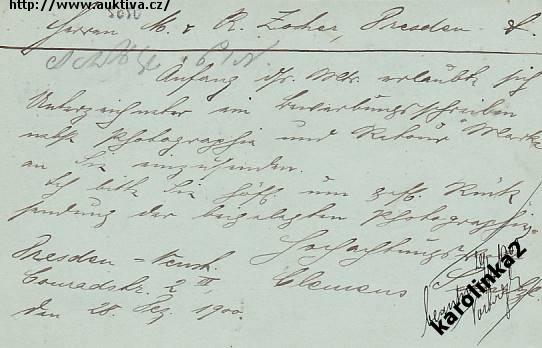 http://www.auktiva.cz/
Herren M. & R. Zocher, Dresden A.
Anfang ds. Mts. erlaubte sich
Unterzeichneter ein Bewerbungsschreiben
nebst Photographie und Retour Marke
an Sie einzusenden.
Ich bitte Sie höfl. um gefl. Rück
sendung der beigelegten Photographie.
Hochachtungsv.
Dresden-Neust.
Conradstr. 2 III
Clemens
den 28. Dez. 1900.
karolinka2